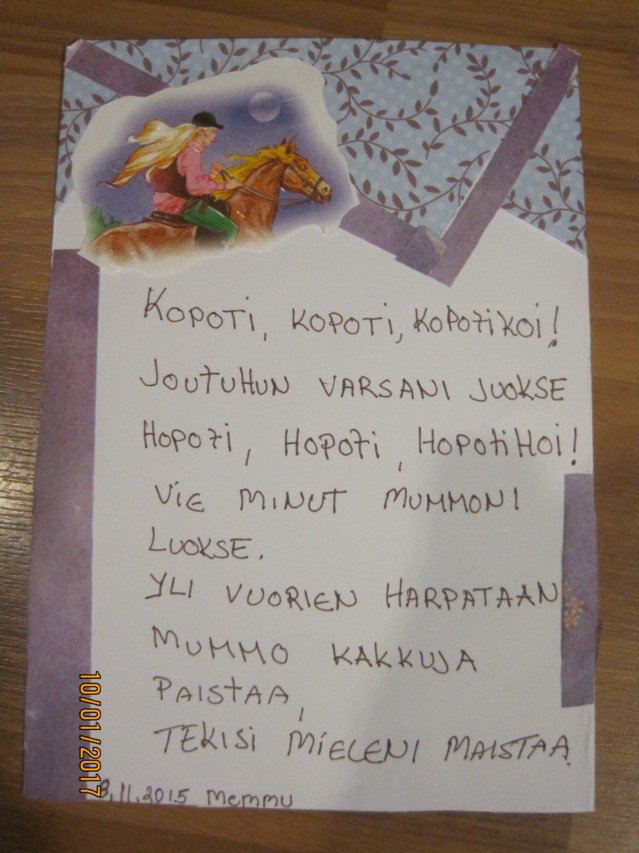 KOPOTI, KOPOTI, KOPOTIKOI!
JOUTUHUN VARSANI JUOKSE
HOPOTI, HOPOTI, HOPOTIHOI!
VIE MINUT MUMMONI
LUOKSE.
YLI VUORIEN HARPATAAN
MUMMO KAKKUJA
PAISTAA,
TEKISI MIELENI MAISTAA.
8.11.2015 MEMMU
10/01/2017